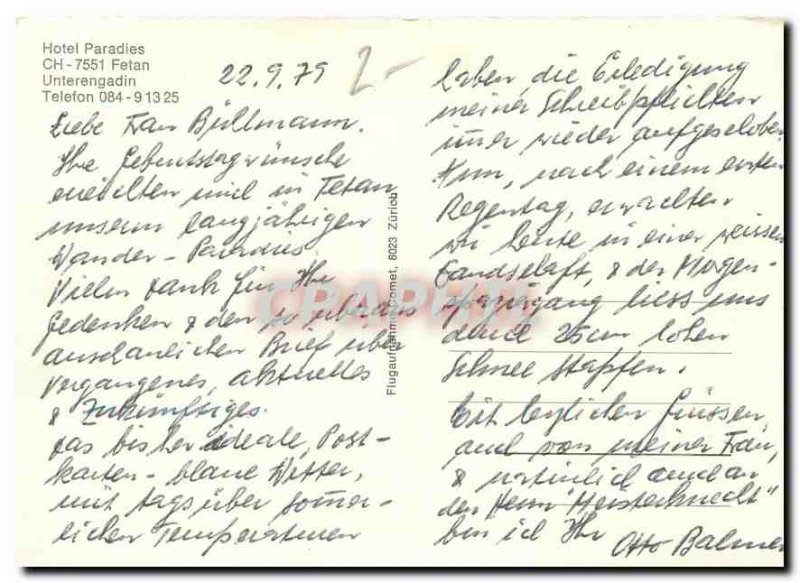 Hotel Paradies
CH - 7551 Fetan
Unterengadin
Telefon 084 - 9 13 25
22.9.79
2-
Liebe Frau Büllmann.
Ihe Geburtstagwünsche
ereilten mich in Fetan
unserm langjährigen
Wander-Paradies.
Vielen Dank für Ihr
Gedenken & den so überaus
anschaulichen Brief über
Vergangenes, aktuelles
& Zukünftiges.
Das bisher ideale, Post-
karten-blaue Wetter,
mit tagsüber sommer-
lichen Temperaturen
Flugaufnahme Comet, 8023 Zürich
haben die Erledigung
meiner Schreibpflichten
immer wieder aufgeschoben
Nun, nach einem ersten
Regentag, erwachten
wir heute in einer weissen
Landschaft, & der Morgen-
spaziergang liess uns
durch 25cm hohen
Schnee stapfen.
Mit herzlichen Grüssen,
auch von meiner Frau,
& natürlich auch an
den Herrn "Meisterknecht"
bin ich Ihr
Otto Balmer
CRAPHIL